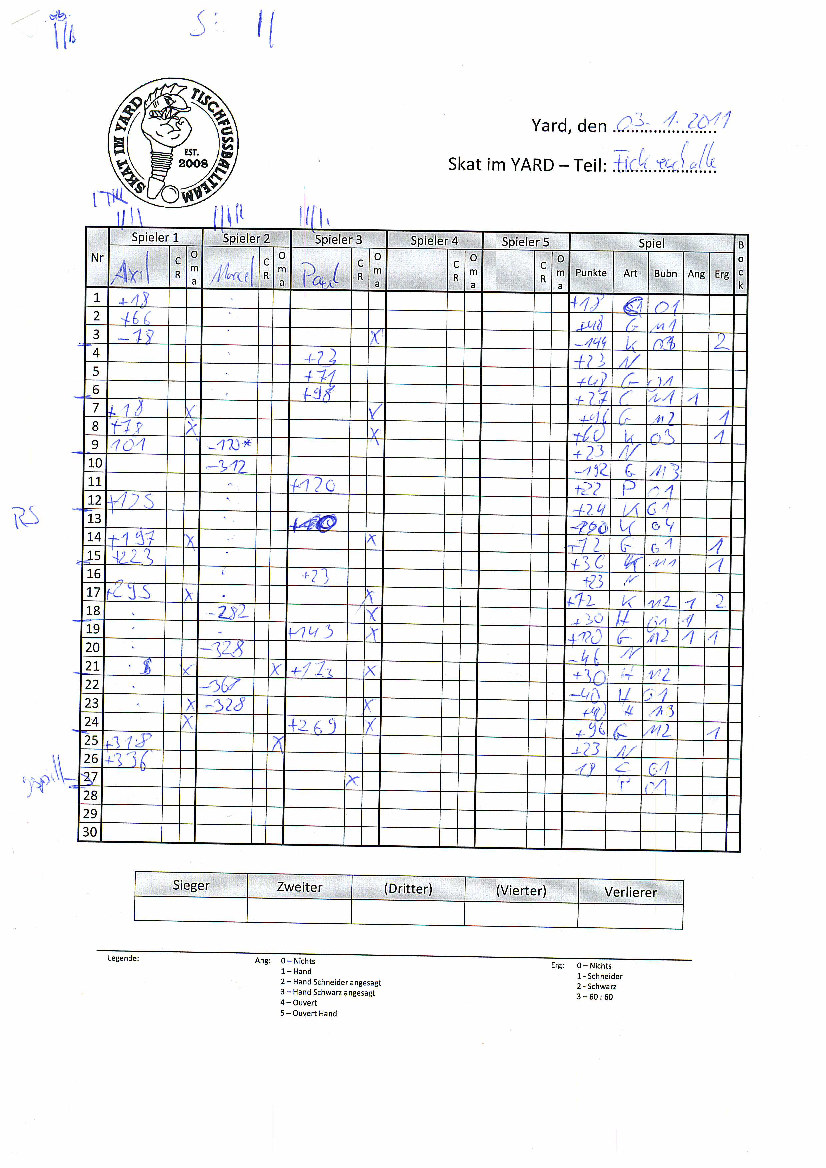 S: 11
SKAT IM YARD TISCHFUSSBALLTEAM
EST. 2008
Yard, den 03. 1. 2011
Skat im YARD – Teil:
Spieler 1 Spieler 2 Spieler 3 Spieler 4 Spieler 5 Spiel Bock
Nr Axil CR Oma Marcel CR Oma Paul CR Oma CR Oma CR Oma Punkte Art Bubn Ang Erg
1 +18 +18 01
2 +66 +48 G M1
3 -78 X -144 K 03 2
4 +23 +23 N
5 +71 +48 G 01
6 +98 +27 M1 1
7 +18 X +96 G M2 1
8 +78 X X +60 K 03 1
9 101 -120* +23 N
10 -312 -192 G M3
11 +120 +22 P 01
12 +125 +24 K G1
13 K G4
RS
14 +197 X X +72 G G1 1
15 +223 +36 K M1 1
16 +23 +23 N
17 +295 X X +72 K M2 1 2
18 -282 X +30 H G1 1
19 +143 X +120 G M2 1 1
20 -328 -46 N
21 X X X +30 H M2
22 -367 -40 H G1
23 X -328 X +40 H M3
24 X +269 X +96 G M2 1
25 +318 X +23 N
26 +336 18 C G1
27 X
28
29
30
Sieger Zweiter (Dritter) (Vierter) Verlierer
Legende:
Ang: 0 – Nichts
1 – Hand
2 – Hand Schneider angesagt
3 – Hand Schwarz angesagt
4 – Ouvert
5 – Ouvert Hand
Erg: 0 – Nichts
1 - Schneider
2 - Schwarz
3 – 60 : 60